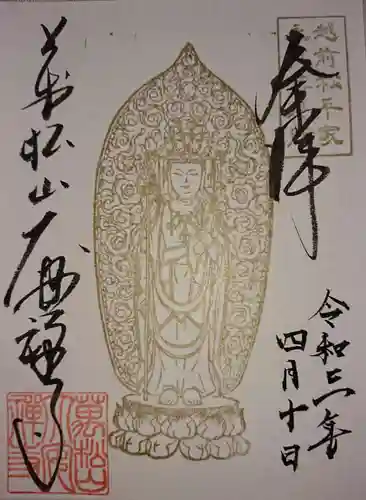 奉拝
越前松平家
令和二年
四月十日
萬松山大安禅寺
萬松山
大安
禅寺